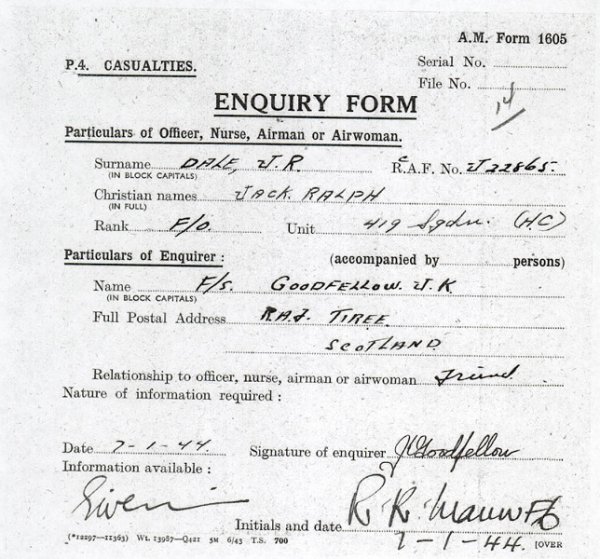 A.M. Form 1605
P.4. CASUALTIES.
Serial No.
File No.
ENQUIRY FORM
Particulars of Officer, Nurse, Airman or Airwoman.
Surname DALE, J.R. C R.A.F. No. J22865.
(IN BLOCK CAPITALS)
Christian names JACK RALPH
(IN FULL)
Rank F/O. Unit 419 Sqdn. (H.C)
Particulars of Enquirer : (accompanied by persons)
Name F/S. GOODFELLOW. J.K
(IN BLOCK CAPITALS)
Full Postal Address R.A.F. TIREE.
SCOTLAND
Relationship to officer, nurse, airman or airwoman friend.
Nature of information required :
Date 7-1-44. Signature of enquirer JKGoodfellow
Information available :
Given
Initials and date R. R. Mann F/O
7-1-44
(*12297-11363) Wt. 13987-Q421 5M 6/43 T.S. 700 [OVER